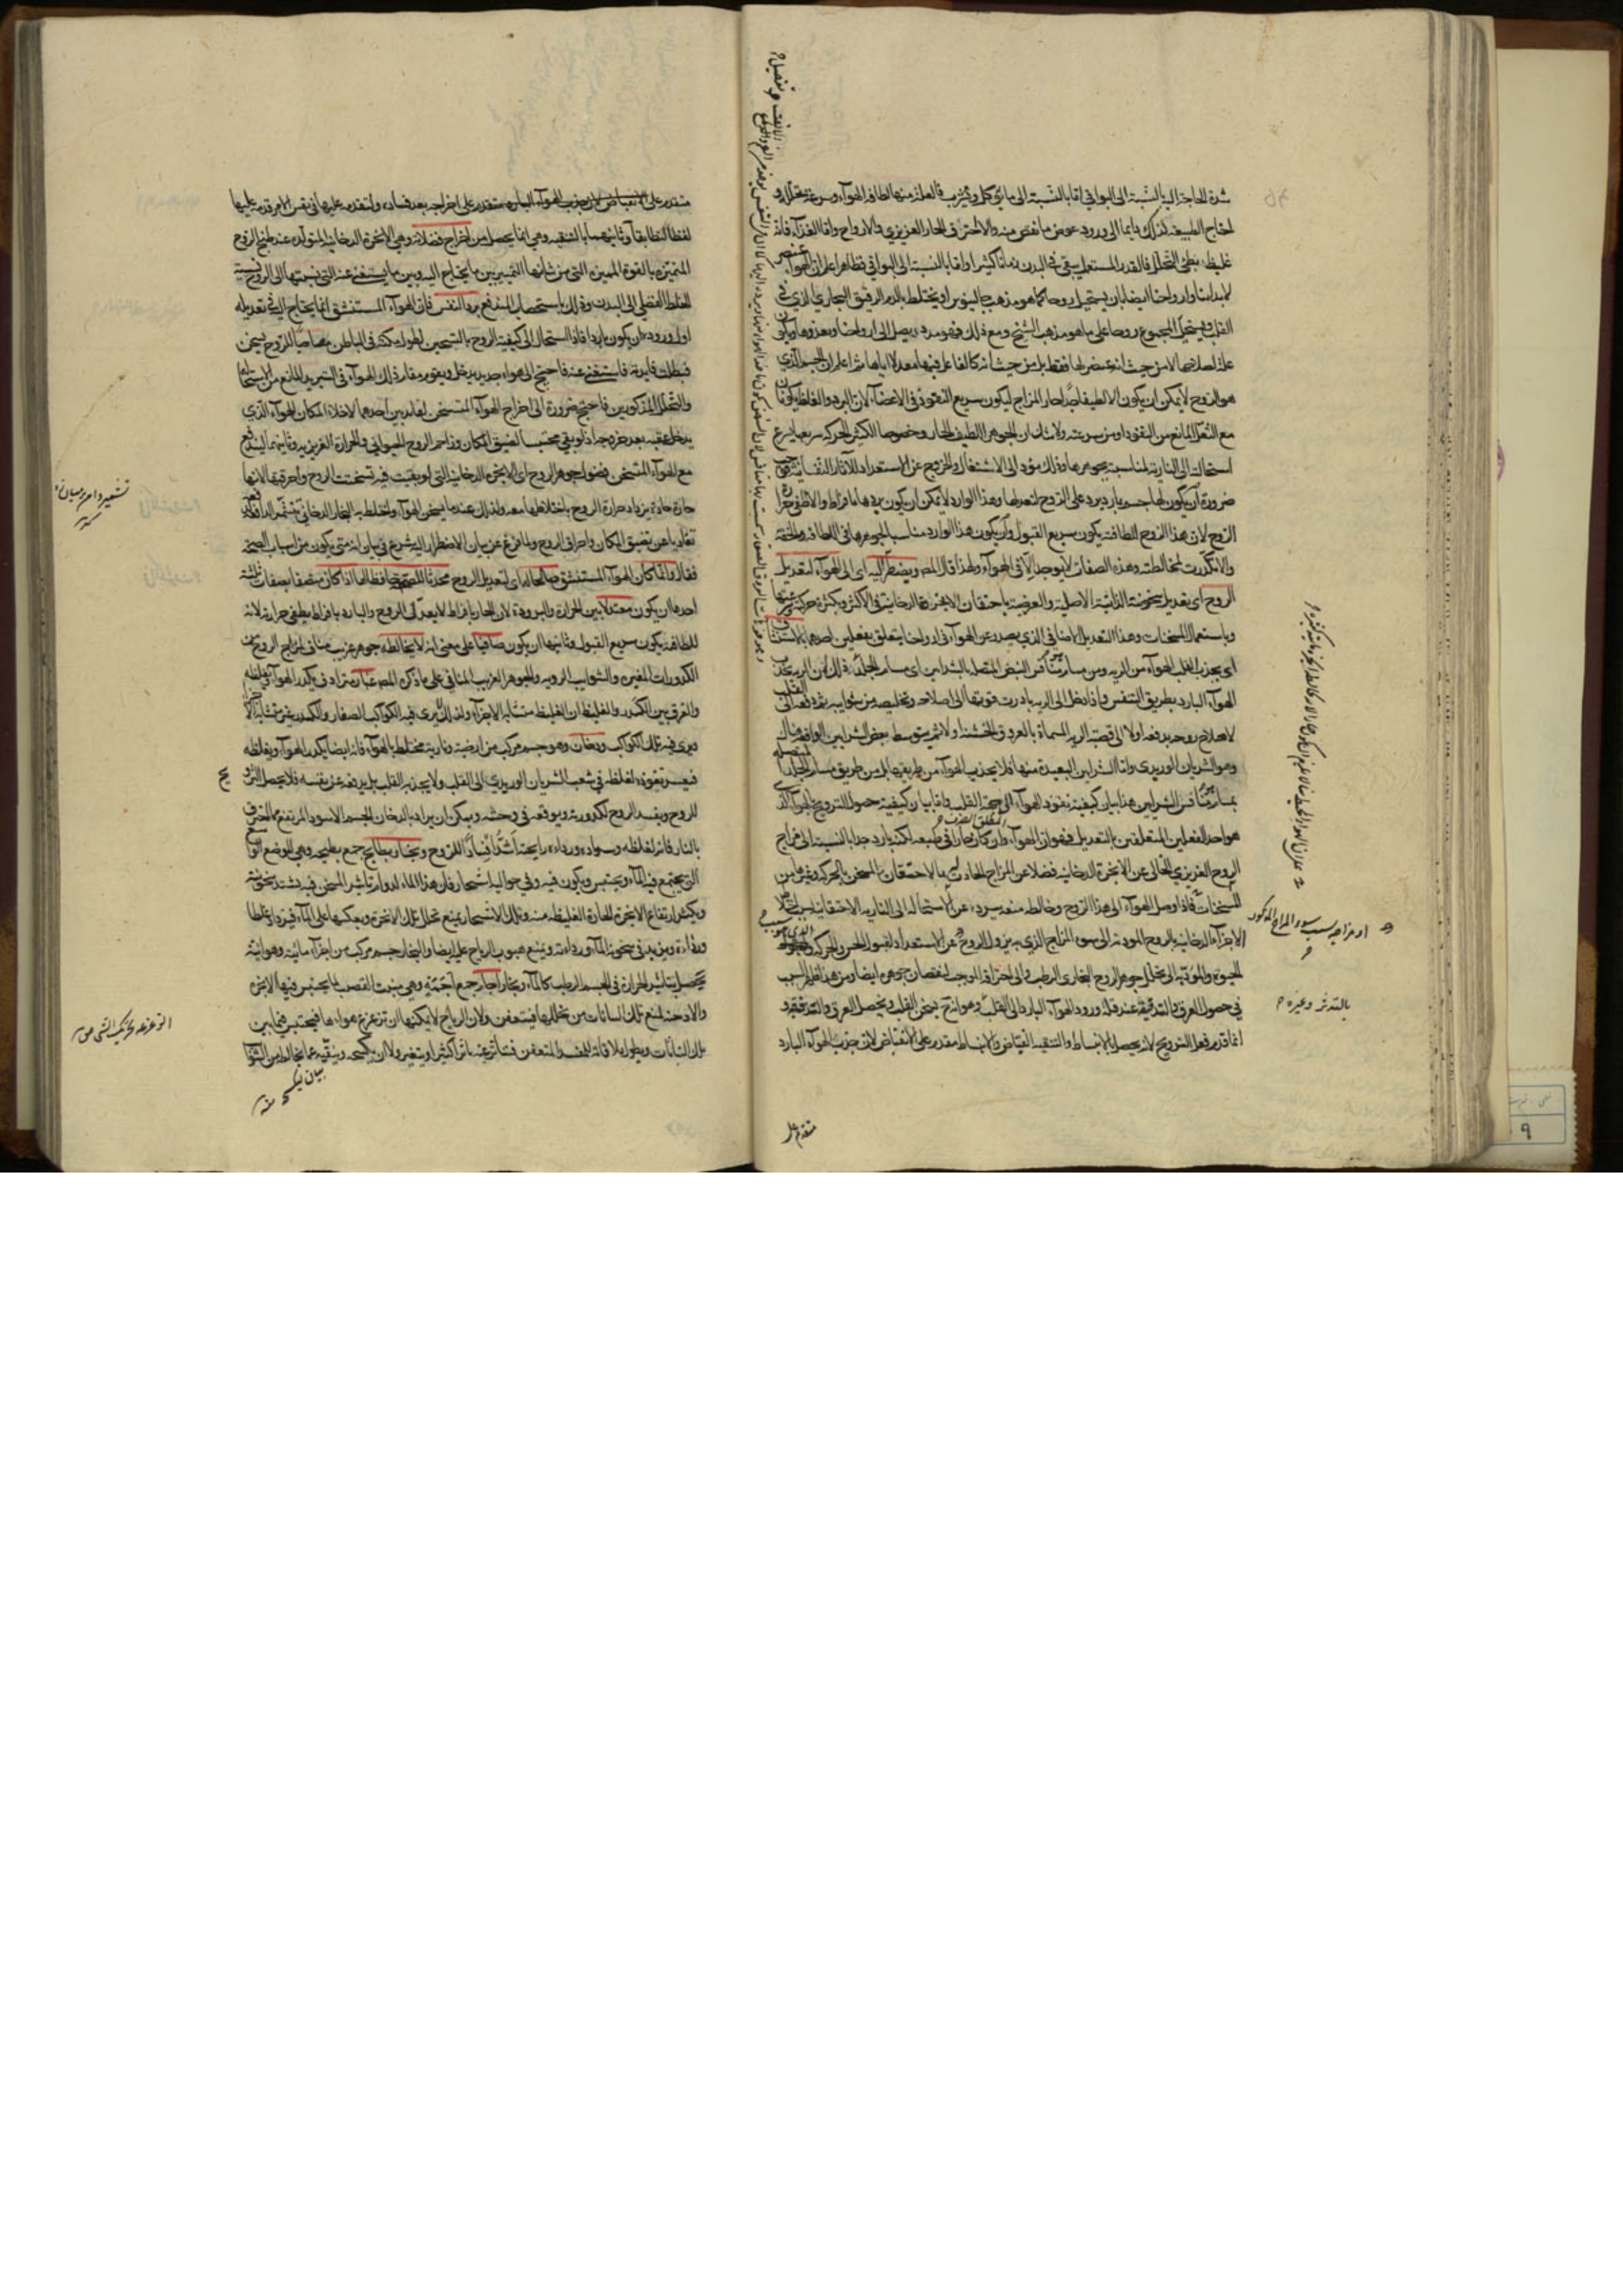 شدة الحاجة اليه بالنسبة الى البواقي اما بالنسبة الى ما يؤكل ويشرب فالعلة منها لطافة الهواء وسرعة تحلله و
احتاج الطبيعة لذلك دايما الى ورود عوض ما نقص منه والاحترق في الحار الغريزي والارواح واما الغذاء فانه
غليظ بطئ التحلل فالقدر المستعمل يبقى في البدن زمانا كثيرا واما بالنسبة الى البواقي فظاهر اعلم ان الهواء عنصر
لابداننا وارواحنا ايضا بان يستحيل روحا كما هو مذهب جالينوس او يختلط بالدم الرقيق البخاري الذي في
القلب ويستحيل المجموع روحا على ما هو مذهب الشيخ ومع ذلك فهو مدد يصل الى ارواحنا ويغذوها ويكون
علة لصلاحها لا من حيث انه عنصر لها فقط بل من حيث انه كالفاعل فيها معدلا اياها ثم اعلم ان الجسم الذي
هو الروح لا يمكن ان يكون الا لطيفا حار المزاج ليكون سريع النفوذ في الاعضاء لان البرد والغلظ يكونان
مع الثقل المانع من النفوذ او من سرعته ولا شك ان الجوهر اللطيف الحار وخصوصا الكثير الحركة سريعا يسرع
استحالته الى النارية لمناسبته بجوهرها وذلك مؤد الى الاشتعال والخروج عن الاستعداد للآثار النفسانية فوجب
ضرورة ان يكون لها جسم بارد يرد على الروح لتعدلها وهذا الوارد لا يمكن ان يكون بردها بافراط والا اطفى حرارة
الروح لان هذا الروح للطافته يكون سريع القبول وان يكون هذا الوارد مناسبا لجوهرها في اللطافة والخفة
والا تكدرت لمخالطته وهذه الصفات لا يوجد الا في الهواء ولهذا قال المص ويضطر اليه اى الى الهواء لتعديل
الروح اى بتعديل سخونته الذاتية الاصلية والعرضية باحتقان الابخرة الدخانية في الاكثر وبكثرة حركته وسرعتها
وباستعمال المسخنات وهذا التعديل الاضافي الذي يصدر عن الهواء في ارواحنا يتعلق بفعلين احدهما بالاستنشاق
اى بجذب القلب الهواء من الرية ومن مسام منافس النبض المتصلة بالشرايين اى مسام الجلد وذلك لان الرية تجذب
الهواء البارد بطريق التنفس واذا دخل الى الرية بادرت قوتها الى اصلاحه وتخليصه من شوايبه ثم دفعه الى القلب
لاصلاح روحه يدفعه اولا الى قصبة الرية المسماة بالعروق الخشنة اولا ثم يتوسط بعض الشرايين الواقعة هناك
وهو الشريان الوريدي واما الشرايين البعيدة منها فلا يجذب الهواء من طريقها بل من طريق مسام الجلد المتصلة
بمسام منافس الشرايين هذا بيان كيفية نفوذ الهواء الى جهة القلب واما بيان كيفية حصول الترويح بالهواء الذي
هو احد الفعلين المتعلقين بالتعديل فهو ان الهواء وان كان حارا في طبيعته لكنه بارد جدا بالنسبة الى مزاج
الروح الغريزي الخالي عن الابخرة الدخانية فضلا عن المزاج الحادث لها بالاحتقان المسخن بالحركة وغيرها من
المسخنات فاذا وصل الهواء الى هذا الروح وخالطه منعه ببرده عن الاستحالة الى النارية الاحتقانية بسبب اختلاط
الاجزاء الدخانية بالروح المودية الى سوء المزاج الذي يزول به الروح عن الاستعداد لقبول الحس والحركة
الحيوة والمؤدية الى تحلل جوهر الروح البخاري الرطب والى احتراقه الموجب لنقصان جوهره ايضا ومن هذا ظهر السبب
في حصول العرق والتدقيقة عند قلة ورود الهواء البارد الى القلب وهو انه ح يسخن القلب ويحصل العرق والتدقيقة و
انما قدم فعل الترويح لانه يحصل بالانبساط والتنقية القباض والانبساط مقدم على الانقباض لان جذب الهواء البارد
مقدم على
بالتدثر وغيره
او مزاجه بسبب سوء المزاج المذكور
متقدم على الانقباض لان جذب الهواء البارد متقدم على اخراجه بعد فساده ولتقدمه عليها في نفس الامر قدمه عليها
لفظا لتطابقا وثانيهما بالتنقية وهي انما يحصل من اخراج فضلاته وهي الابخرة الدخانية المتولدة عند طبخ الروح
المتميزة بالقوة المميزة التي من شانها التمييز بين ما يحتاج اليه وبين ما يستغنى عنه التي نسبتها الى الروح نسبة
الخلط الفضلي الى البدن وذلك باستصحاب المندفع برد النفس فان الهواء المستنشق انما يحتاج اليه في تعديله
اول وروده ان يكون باردا فاذا استحال الى كيفية الروح بالتسخين لطول مكثه في الباطن مصاحبا للروح يسخن
فبطلت فايدته فاستغنى عنه فاحتيج الى هواء جديد يدخل ويقوم مقام ذلك الهواء في التبريد المانع من الاستحالة
والتحلل المذكورين فاحتيج ضرورة الى اخراج الهواء المتسخن لفايدتين احدهما لاخلاء المكان للهواء الذي
يدخل عقيبه بعد خروجه اذ لو بقي محتبسا لضيق المكان وزاحم الروح الحيواني والحرارة الغريزية وثانيهما ليندفع
مع الهواء المتسخن فضول جوهر الروح اى الابخرة الدخانية التي لو بقيت فيه تسخنت الروح واحرقتها لانها
حارة حادة يزداد حرارة الروح باختلاطها معه ولذلك عندما يسخن الهواء واختلط به البخار الدخاني
تفاديا عن تضييق المكان واحراق الروح ولما فرغ عن بيان الاضطرار اليه شرع في بيان انه متى يكون من اسباب الصحة
فقال وانما كان الهواء المستنشق صالحا له اى لتعديل الروح محدثا للصحة حافظا لها اذا كان متصفا بصفات ثلثة
احدها ان يكون معتدلا بين الحرارة والبرودة لان الحار بافراط لا يعدل الروح والبارد بافراط يطفي حرارته لانه
للطافته يكون سريع القبول وثانيها ان يكون صافيا على معنى انه لا يخالطه جوهر غريب مناف لمزاج الروح من
الكدورات المغيرة والشوايب الردية والجوهر الغريب المنافي على ما ذكره المص غبار مترادف يكدر الهواء ويغلظه
والفرق بين الكدر والغليظ ان الغليظ متشابه الاجزاء ولذلك لا يرى فيه الكواكب الصغار والكدر غير متشابه الاجزاء
ويرى فيه تلك الكواكب ودخان وهو جسم مركب من ارضية ونارية مختلط بالهواء فانه ايضا يكدر الهواء ويغلظه
فيعسر نفوذه لغلظه في شعب الشريان الوريدي الى القلب ولا يجذبه القلب بل يدفعه عن نفسه فلا يحصل الترويح
للروح ويفسد الروح لكدورته ويوقعه في وحشة ويمكن ان يراد بالدخان الجسم الاسود المرتفع مما احترق
بالنار فانه لغلظه وسواده ورداءة رايحته اشد افسادا للروح وبخار بطايح جمع بطيحة وهي الموضع الواسع
التي يجتمع فيه الماء ويحتبس ويكون فيه وفي حواليه اشجار فان هذا الماء لدوام تاثير المسخن فيه تشتد سخونته
ويكثر ارتفاع الابخرة الحارة الغليظة منه وتلك الاشجار يمنع تحلل تلك الابخرة ويعكسها على الماء فيزداد غلظا
ورداءة ويزيد في سخونة الماء ورداءته ويمنع هبوب الرياح عليه ايضا والبخار جسم مركب من اجزاء مائية وهوائية
يحصل بتاثير الحرارة في الجسم الرطب كالماء وبخار آجام جمع اجمة وهي منبت القصب لما يحتبس فيها الابخرة
والادخنة لمنع تلك النباتات من تحللها فيتعفن ولان الرياح لا يمكنها ان تزعزع هواءها فيحتبس فيما بين
تلك النباتات ويطول ملاقاته للمفسد المتعفن فيتاثر عنه تاثرا كثيرا ويتغير ولا ان يكسحه وينقيه عما يخالطه من الشوايب
بيان يكسحه منه
الزعزعة تحريك الشي